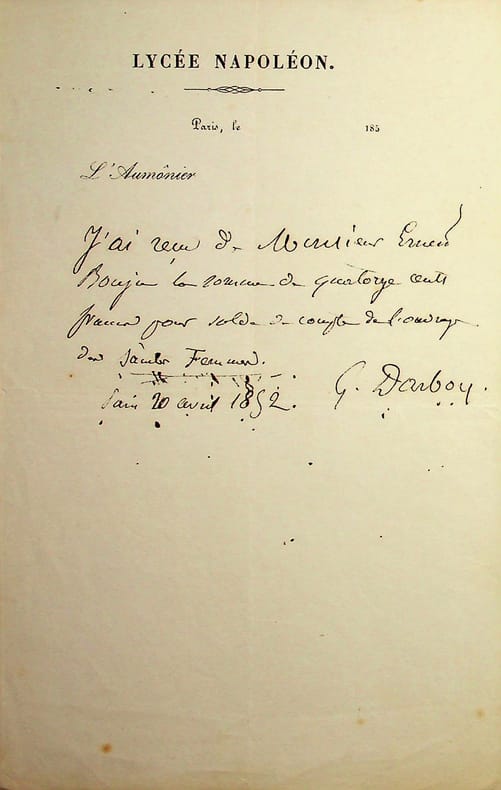 LYCÉE NAPOLÉON.
Paris, le 185
L'Aumônier
J'ai reçu de Monsieur Ernest
la somme de quatorze cents
francs pour solde de compte de l'ouvrage
des Saintes Femmes.
Paris 20 avril 1852. G. Darboy.